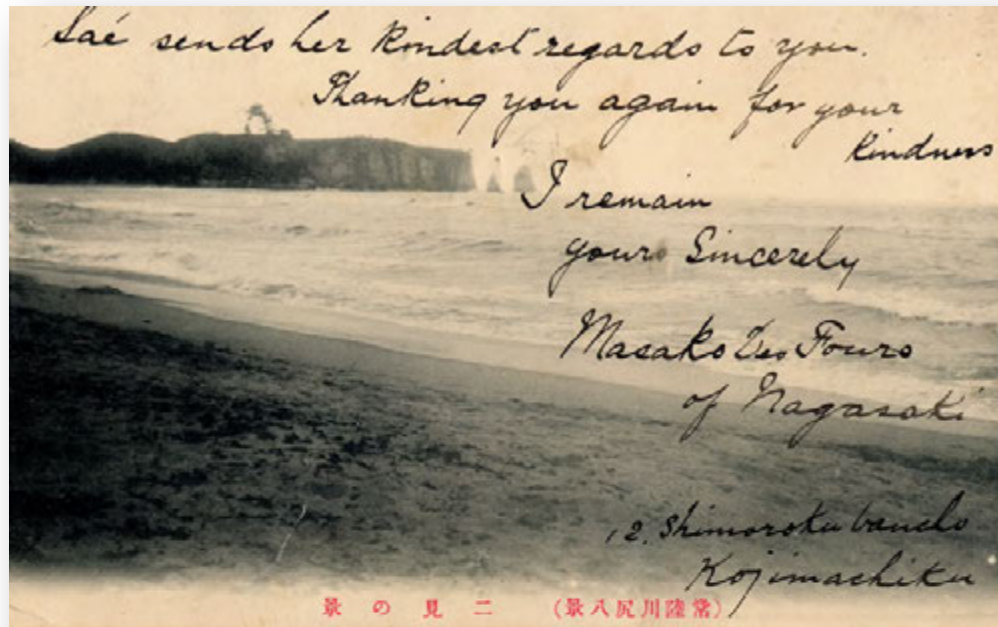 Saé sends her kindest regards to you.
Thanking you again for your
kindness
I remain
yours Sincerely
Masako Fours
of Nagasaki
12. Shimoroku bancho
Kojimachiku
(常陸川尻八景) 二見の景